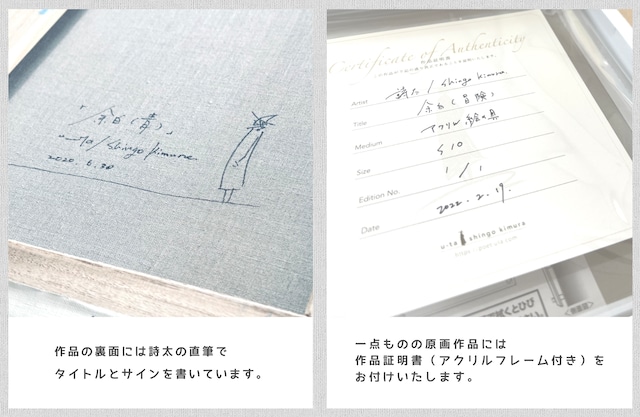 「余白(青)」
u-ta/shingo kimura
2020.6.30
作品の裏面には詩太の直筆で
タイトルとサインを書いています。
Certificate of Authenticity
作品証明書
Artist 詩太/shingo kimura.
Title 余白(冒険)
Medium アクリル絵の具
Size S10
Edition No. 1/1
Date 2022.2.19.
u-ta shingo kimura
一点ものの原画作品には
作品証明書(アクリルフレーム付き)を
お付けいたします。